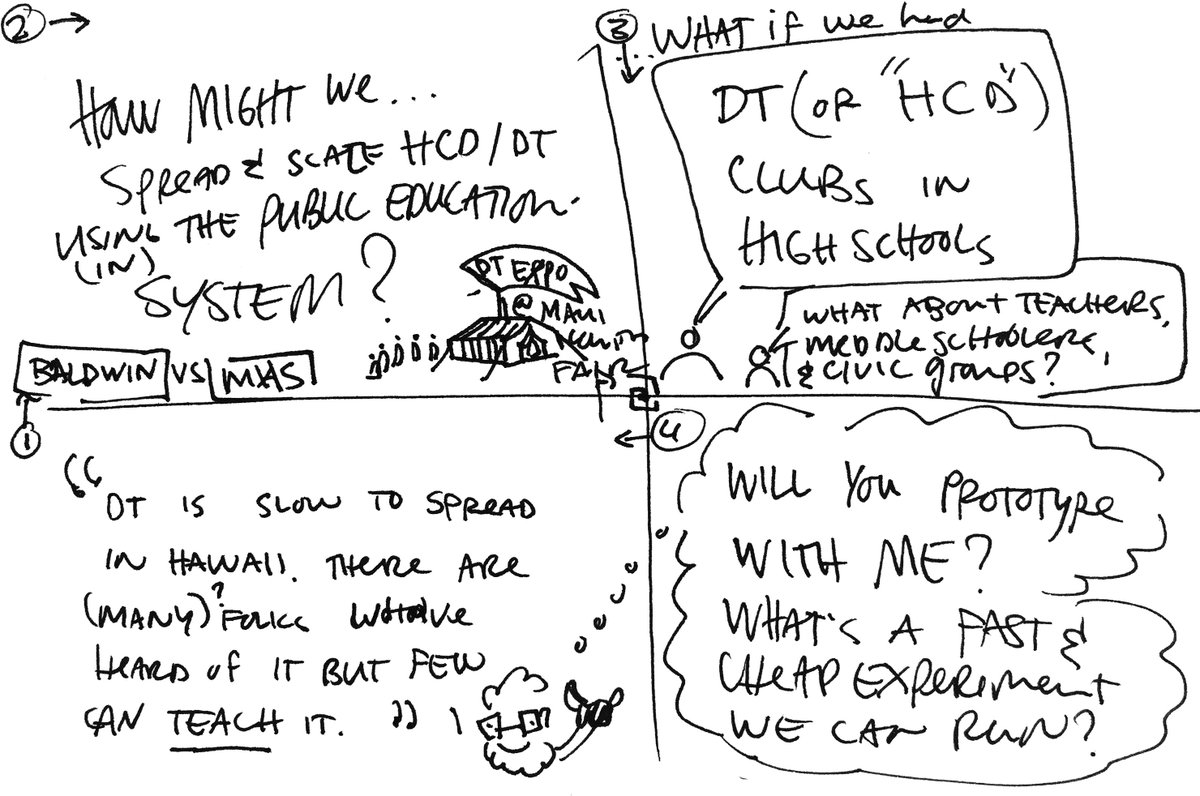 2 →
HOW MIGHT WE...
SPREAD & SCALE HCD/DT
USING THE PUBLIC EDUCATION
(IN)
SYSTEM?
DT EXPO
@ MAUI
FAIR
BALDWIN VS MHS
1
3
...WHAT if we had
DT (OR "HCD")
CLUBS IN
HIGH SCHOOLS
WHAT ABOUT TEACHERS,
MIDDLE SCHOOLERS,
& CIVIC groups?
"
DT IS SLOW TO SPREAD
IN HAWAII. THERE ARE
(MANY)? FOLKS WHO'VE
HEARD OF IT BUT FEW
CAN TEACH IT. "
4
WILL YOU PROTOTYPE
WITH ME?
WHAT'S A FAST &
CHEAP EXPERIMENT
WE CAN RUN?